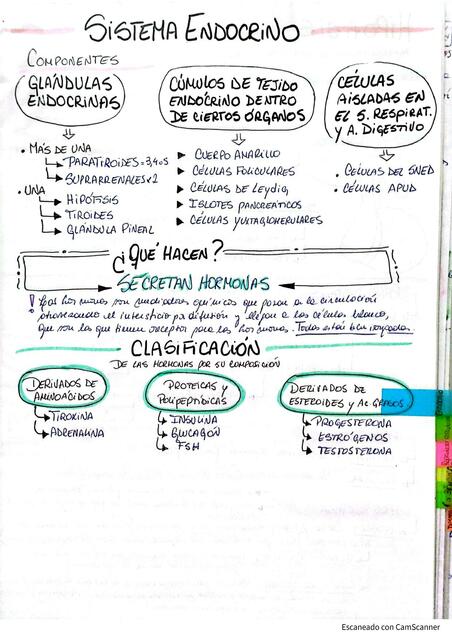 SISTEMA ENDOCRINO
COMPONENTES
GLÁNDULAS
ENDOCRINAS
• MÁS DE UNA
PARATIROIDES=3,4 o 5
SUPRARRENALES x2
• UNA
HIPÓFISIS
TIROIDES
GLÁNDULA PINEAL
CÚMULOS DE TEJIDO
ENDÓCRINO DENTRO
DE CIERTOS ÓRGANOS
CUERPO AMARILLO
CÉLULAS FOLICULARES
CÉLULAS DE LEYDIG
ISLOTES PANCREÁTICOS
CÉLULAS YUXTAGLOMERULARES
CÉLULAS
AISLADAS EN
EL S. RESPIRAT.
Y A. DIGESTIVO
• CÉLULAS DEL SNED
• CÉLULAS APUD
¿QUÉ HACEN?
SECRETAN HORMONAS
! Las hormonas son mediadores químicos que pasan a la circulación
atravesando el intersticio por difusión y llegan a las células blanco,
que son las que tienen receptor para las hormonas. Todas están bien irrigadas.
CLASIFICACIÓN
DE LAS HORMONAS POR SU COMPOSICIÓN
DERIVADOS DE
AMINOÁCIDOS
TIROXINA
ADRENALINA
PROTEICAS Y
POLIPEPTÍDICAS
INSULINA
GLUCAGÓN
FSH
DERIVADOS DE
ESTEROIDES Y AC. GRASOS
PROGESTERONA
ESTRÓGENOS
TESTOSTERONA
Escaneado con CamScanner